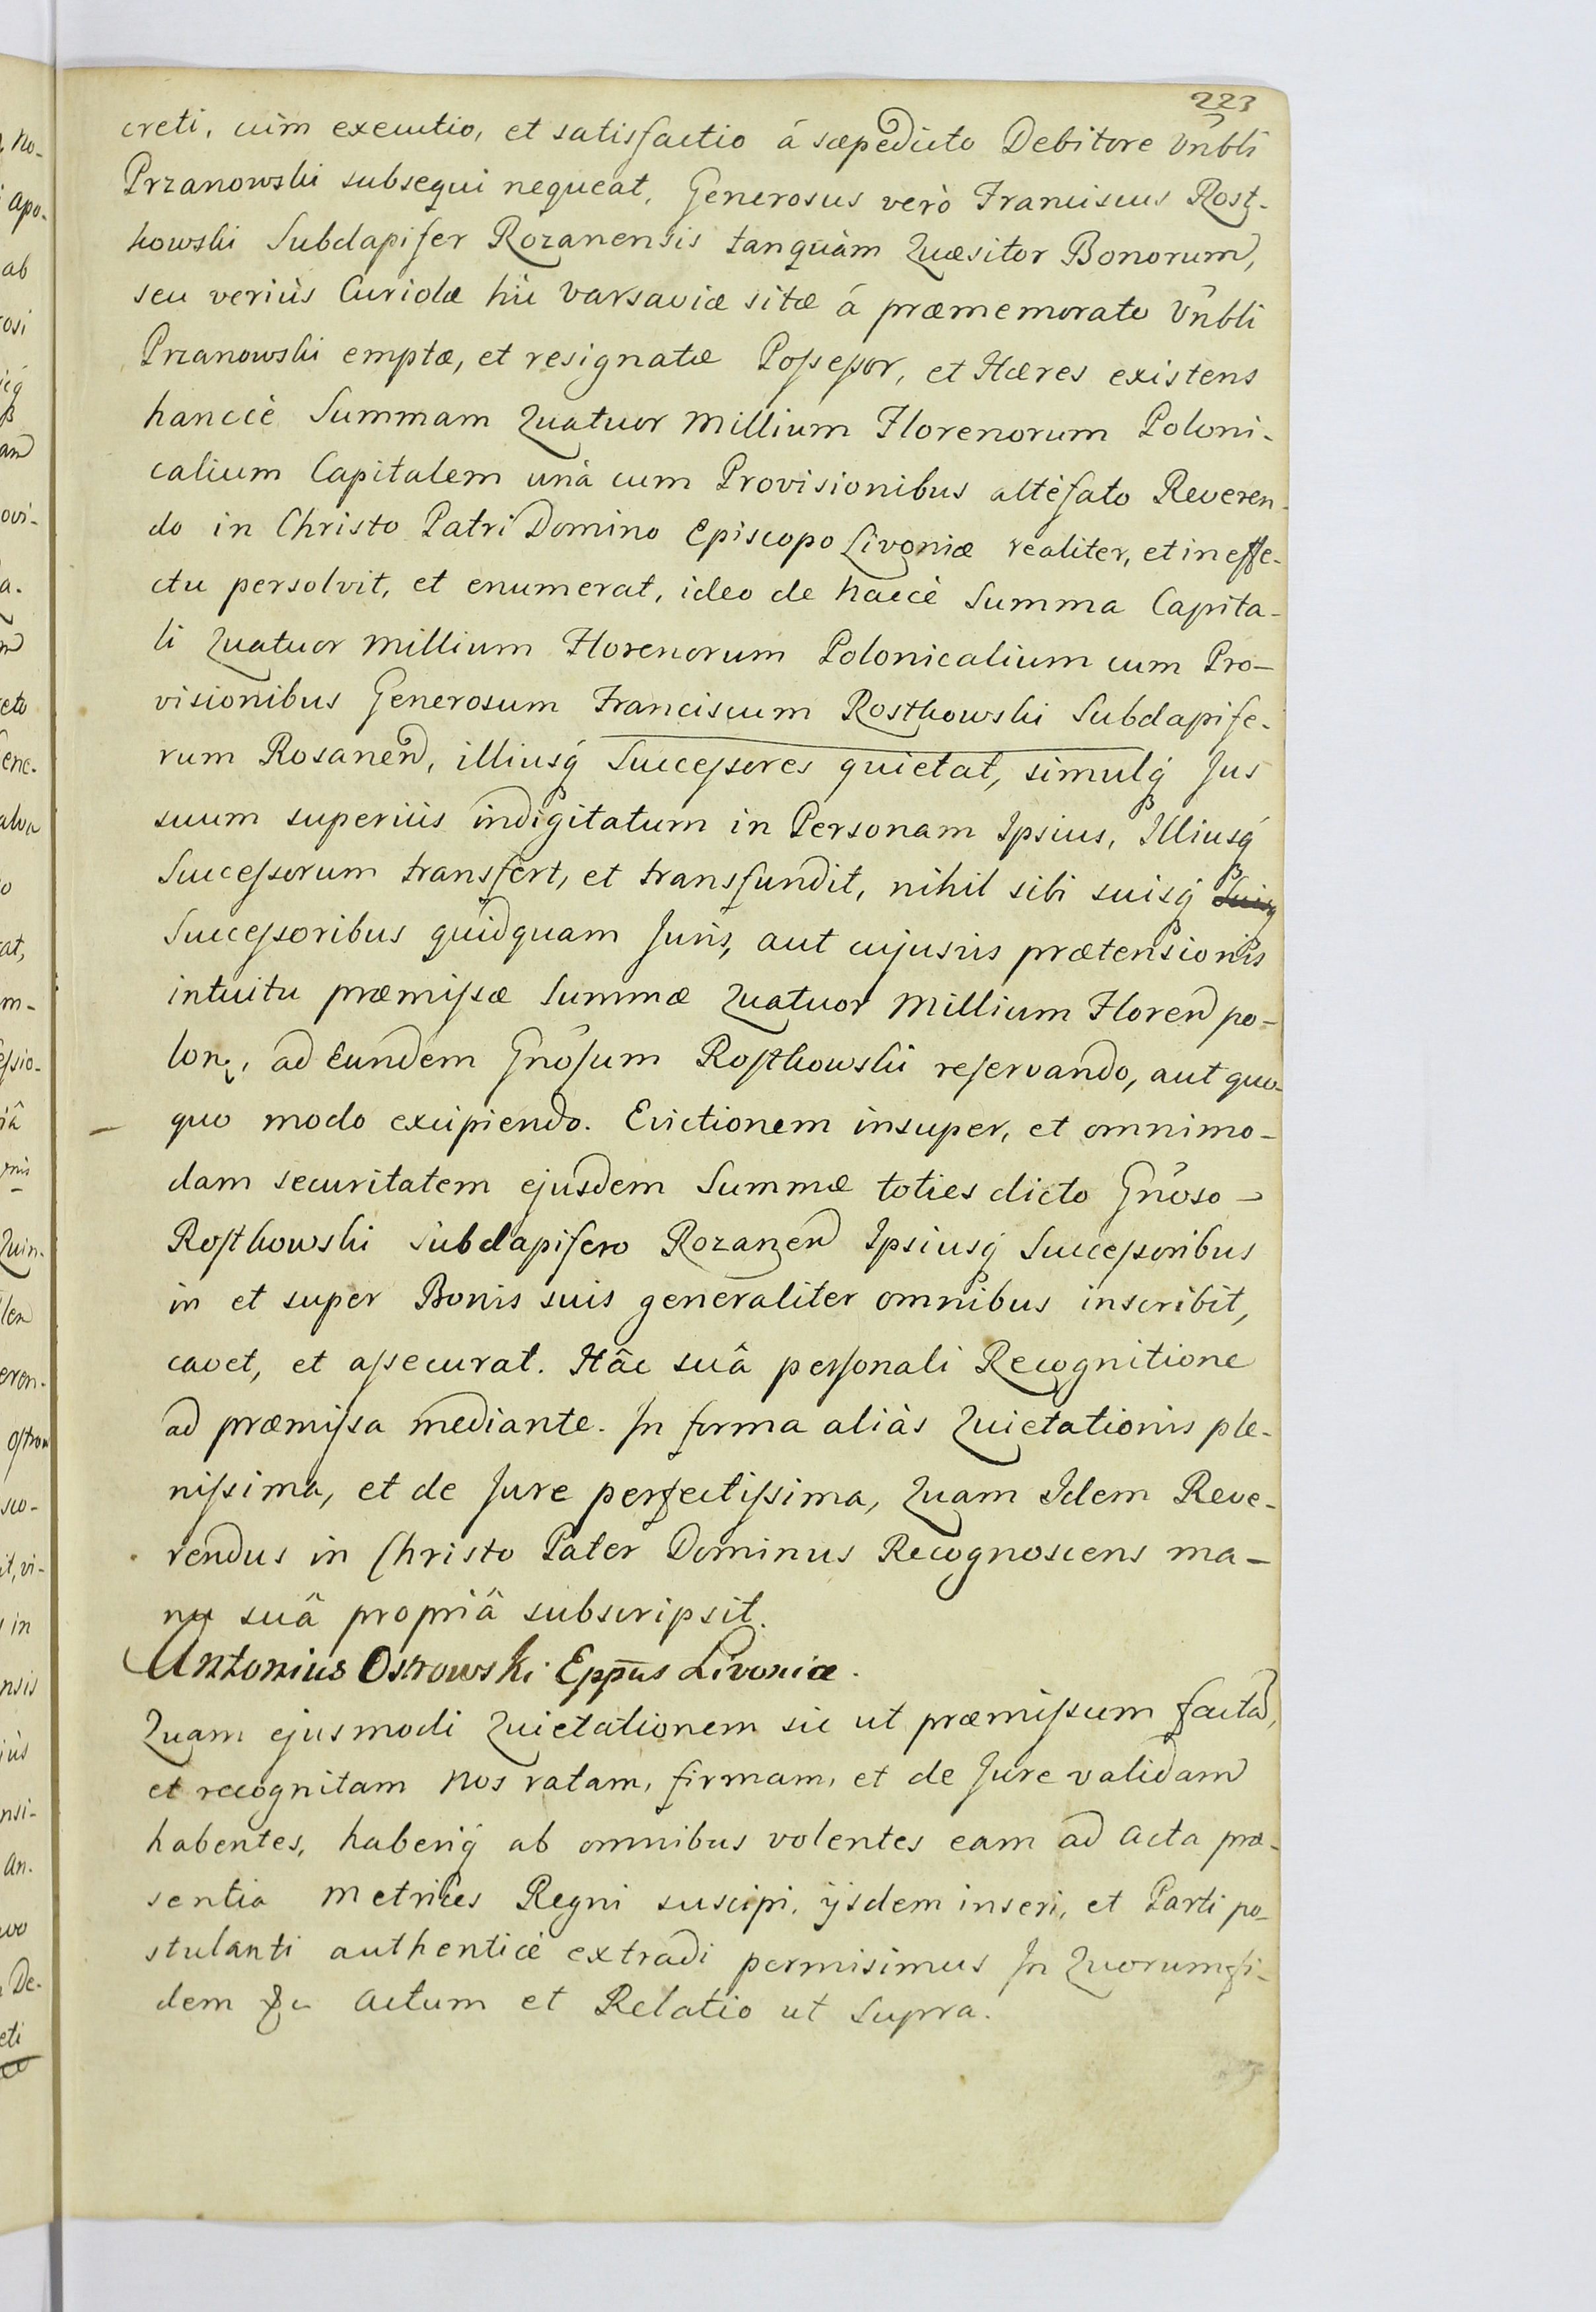 223
creti, cùm executio, et satisfactio á sæpedicto Debitore Vñbli
Przanowski subsequi nequeat, Generosus verò Franciscus Rost-
kowski Subdapifer Rozanensis tanquàm Quæsitor Bonorum,
seu veriùs Curiolæ hìc Varsaviæ sitæ á præmemorato Vñbli
Przanowski emptæ, et resignatæ Poſseſsor, et Hæres existens
hancce Summam Quatuor Millium Florenorum Poloni-
calium Capitalem unà cum Provisionibus altèfato Reveren-
do in Christo Patri Domino Episcopo Livoniæ realiter, et in effe-
ctu persolvit, et enumerat, ideo de hacce Summa Capita-
li Quatuor Millium Florenorum Polonicalium cum Pro-
visionibus Generosum Franciscum Rostkowski Subdapife-
rum Rosanen, illiusq́ Succeſsores quietat, simulq́ Jus
suum superiùs indigitatum in Personam Ipsius, Illiusq́
Succeſsorum transfert, et transfundit, nihil sibi suisq́ suisq́
Succeſsoribus quidquam Juris, aut cujusvis prætensionis
intuitu præmiſsæ Summæ Quatuor Millium Floren po-
lon, ad eundem Gnõsum Roſtkowski reſervando, aut quo-
quo modo excipiendo. Evictionem insuper, et omnimo-
dam securitatem ejusdem Summæ toties dicto Gnõso
Roſtkowski Subdapifero Rozanen Ipsiusq́ Succeſsoribus
in et super Bonis suis generaliter omnibus inscribit,
cavet, et aſsecurat. Hâc suâ perſonali Recognitione
ad præmiſsa mediante. In forma aliàs Quietationis ple-
niſsima, et de Jure perfectiſsima, Quam Idem Reve-
rendus in Christo Pater Dominus Recognoscens ma-
nu suâ propriâ subscripsit.
Antonius Ostrowski Epp̃us Livoniæ.
Quam ejusmodi Quietationem sic ut præmiſsum factam,
et recognitam Nos ratam, firmam, et de Jure validam
habentes, haberiq́ ab omnibus volentes eam ad Acta præ-
sentia Metrices Regni suscipi, ijsdem inseri, et Parti po-
stulanti authenticè extradi permisimus In Quorum fi-
dem &c Actum et Relatio ut Supra.